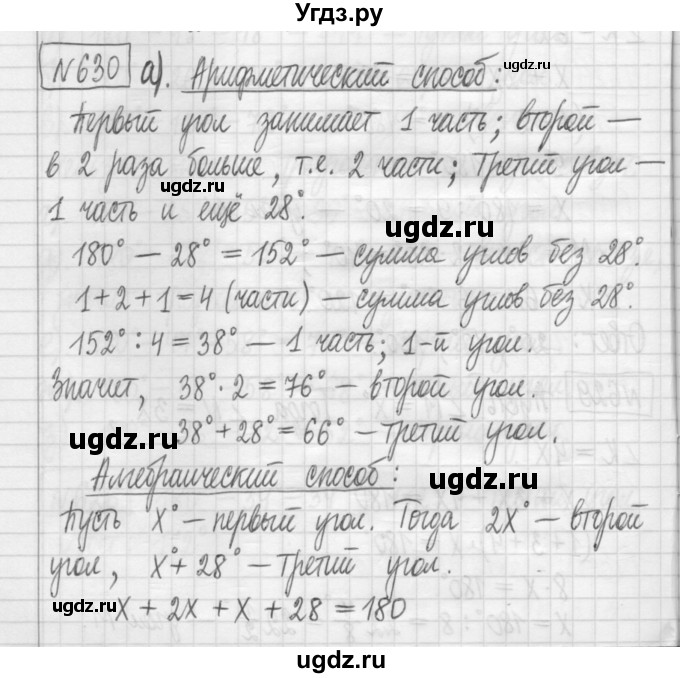 Угдз.ру
№630 а). Арифметический способ:
Первый угол занимает 1 часть; второй —
в 2 раза больше, т.е. 2 части; третий угол —
ugdz.ru
1 часть и ещё 28°.
ugdz.ru
180° — 28° = 152° — сумма углов без 28°.
1+2+1=4 (части) — сумма углов без 28°.
152° : 4 = 38° — 1 часть; 1-й угол.
Значит, 38° · 2 = 76° — второй угол.
38° + 28° = 66° — третий угол.
ugdz.ru
Алгебраический способ:
ugdz.ru
Пусть x° — первый угол. Тогда 2x° — второй
угол, x° + 28° — третий угол.
ugdz.ru
x + 2x + x + 28 = 180
ugdz.ru